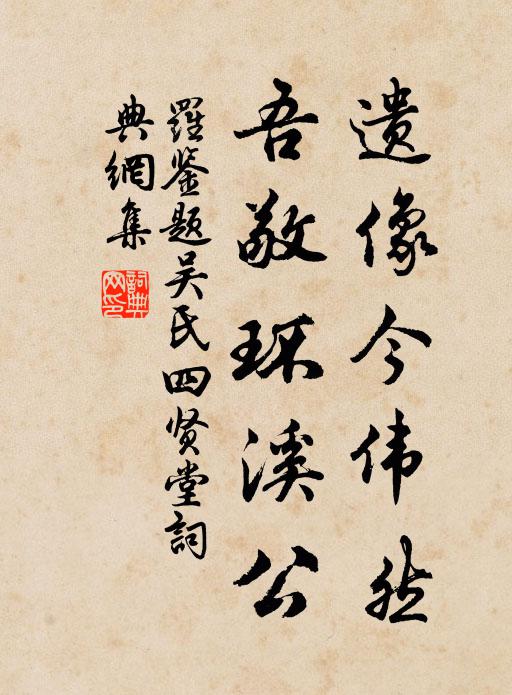 遗像今伟然
吾敬环溪公
羅鉴题吴氏四贤堂詞
典網集
詞典网印